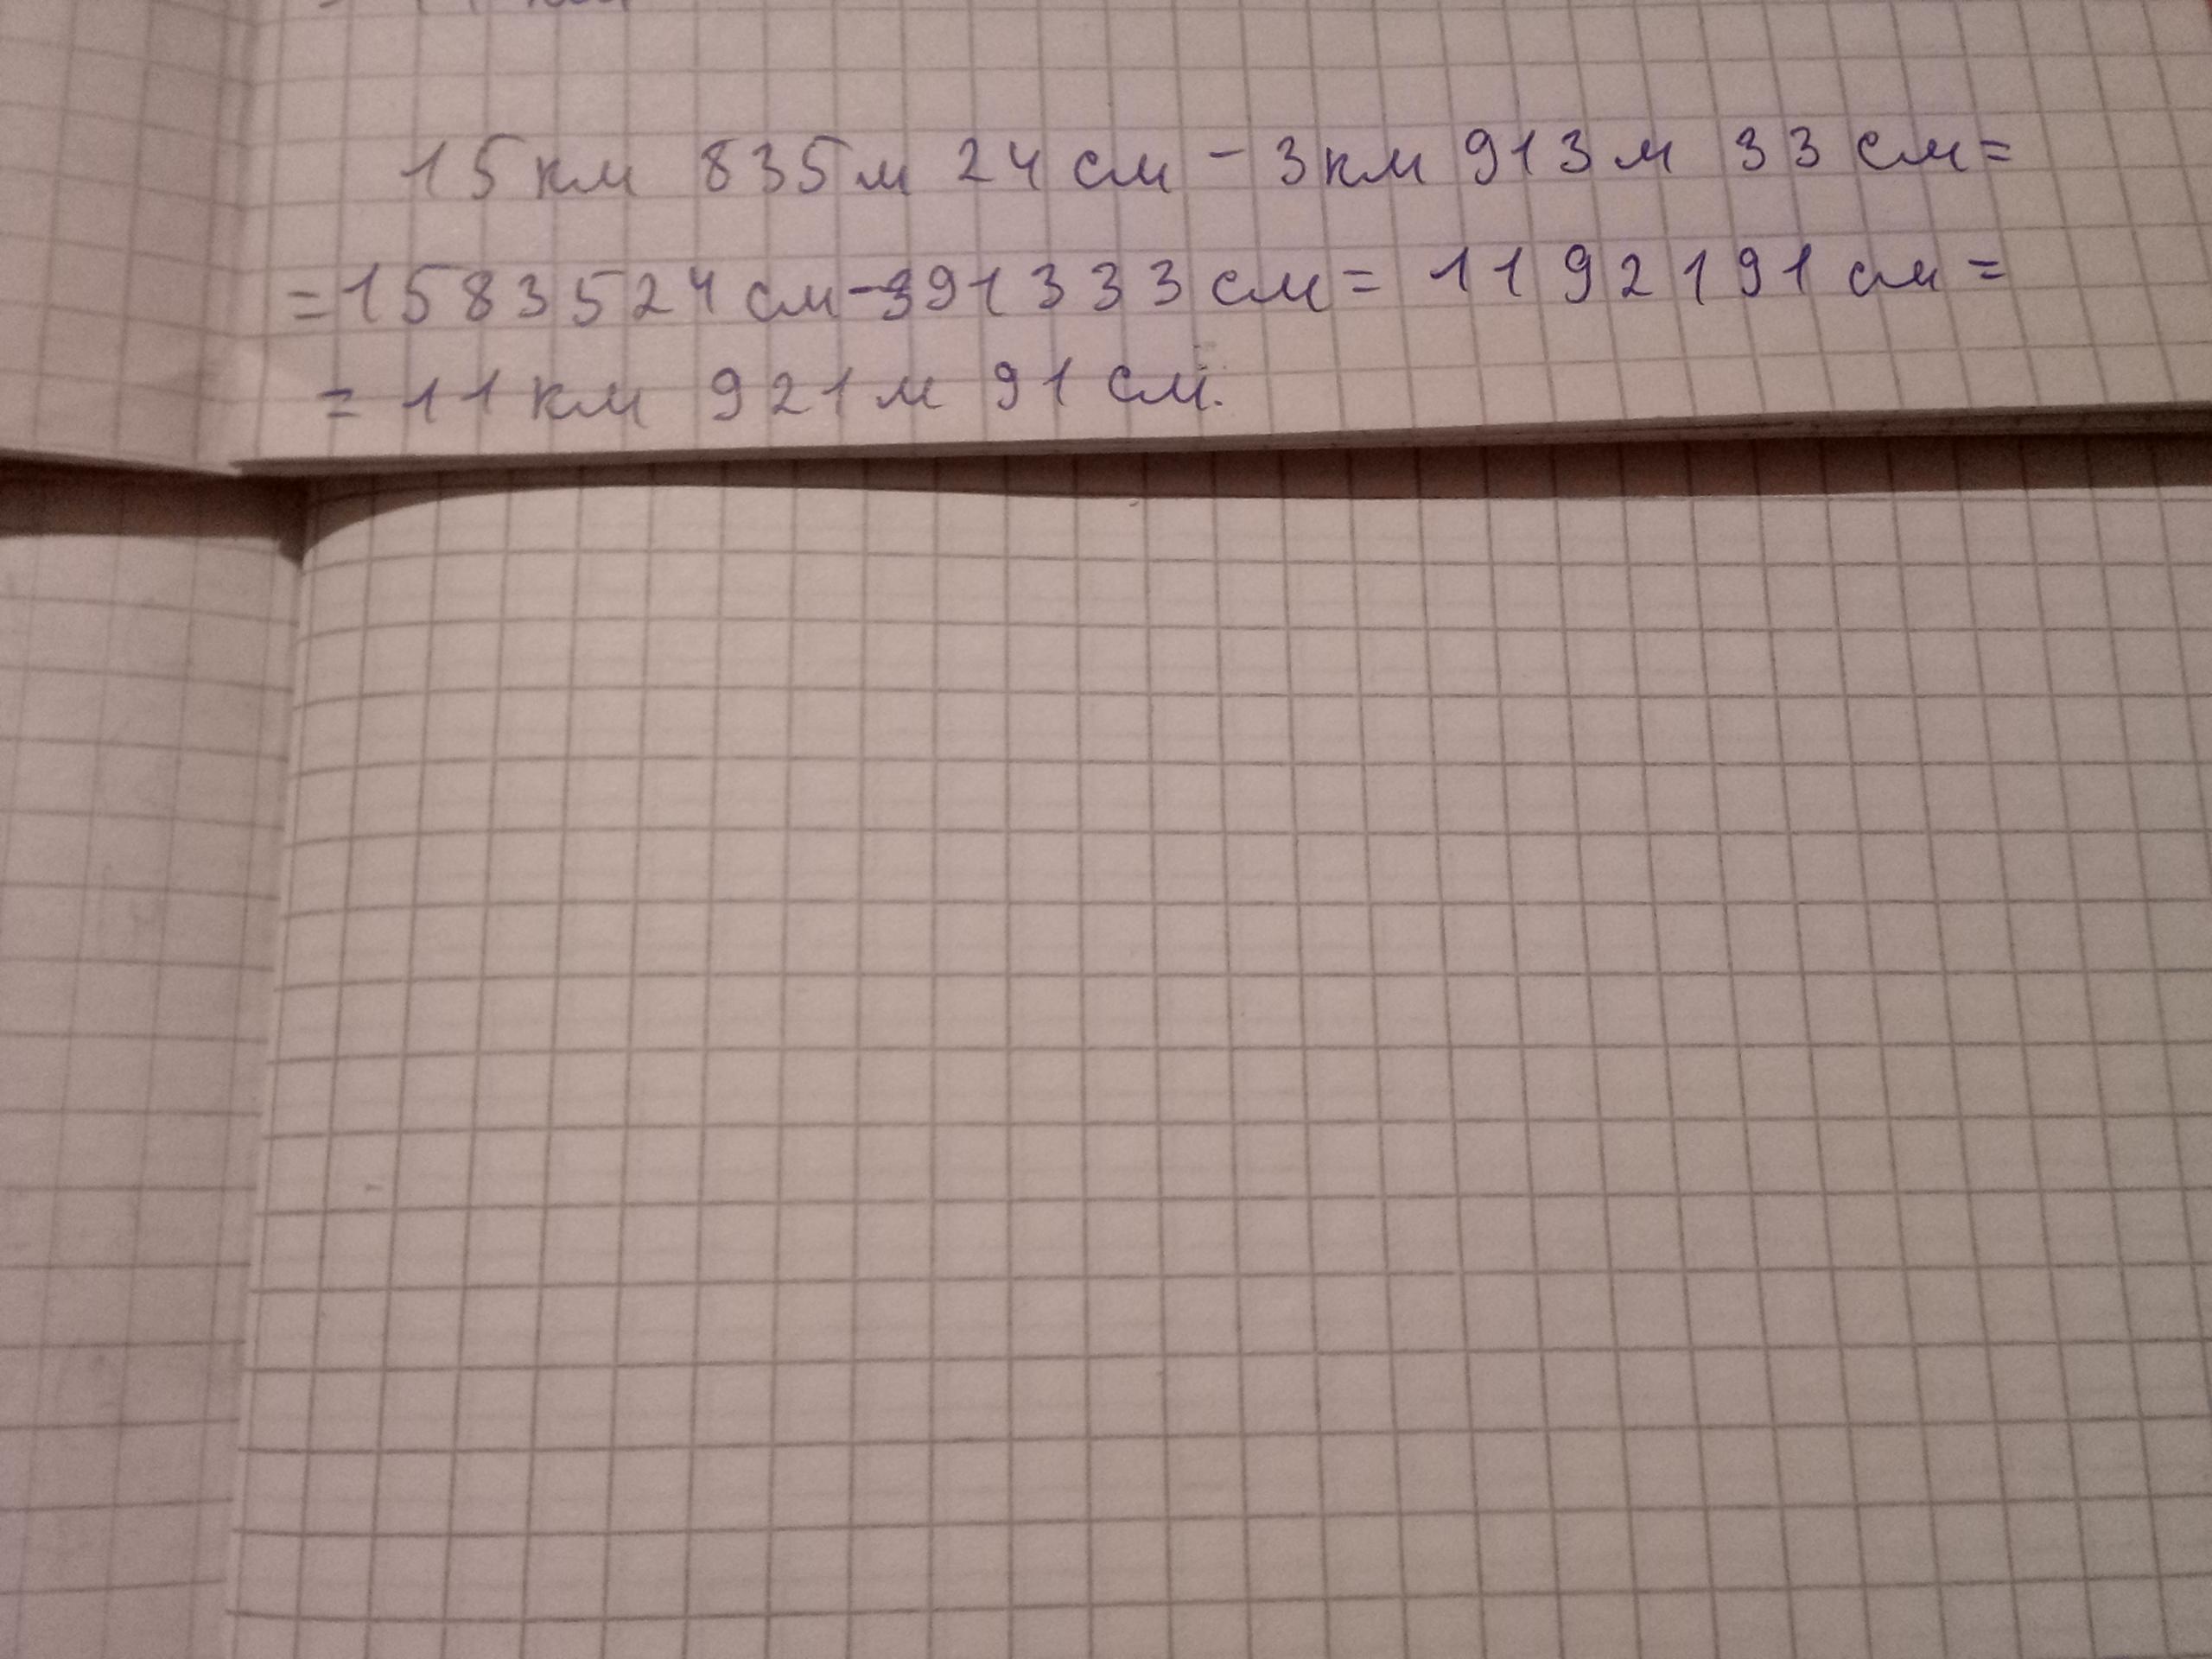 15 км 835 м 24 см - 3 км 913 м 33 см =
= 1583524 см - 391333 см = 1192191 см =
= 11 км 921 м 91 см.